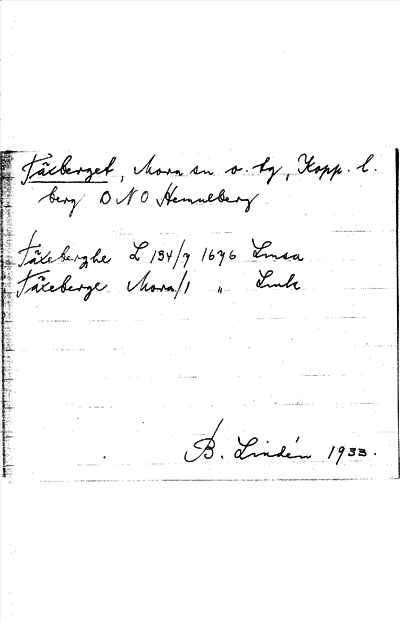 Fäxberget, Mora sn o. tg, Kopp. l.
berg ONO Hemulberg
Fäxeberghe L 134/7 1696 Lmsa
Fäxeberge Mora/1 " Lmk
B. Lindén 1933.